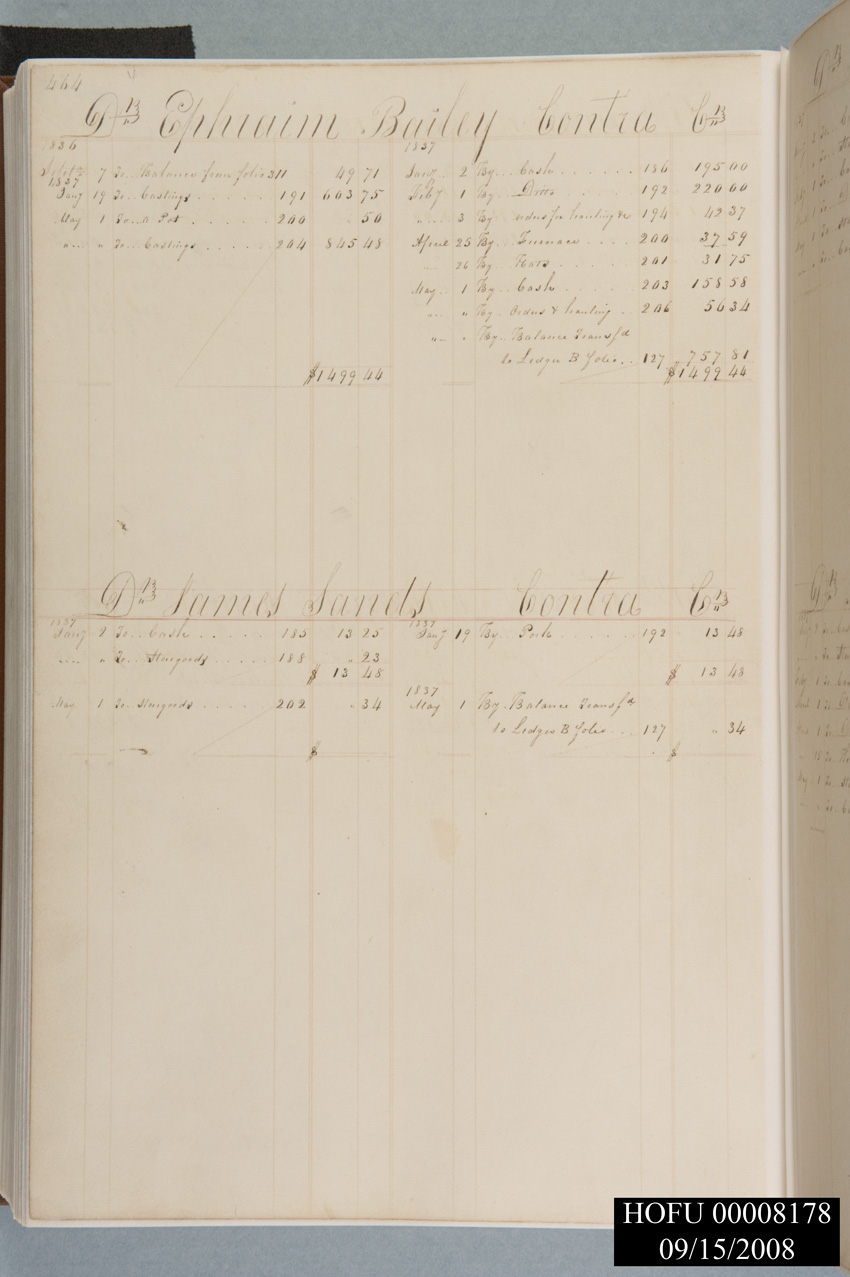 464
Dr Ephraim Bailey Contra Cr
1836 1837
7 To Balance from folio 311 49 71 Jany 2 By Cash 186 195 00
1837
Jany 19 To Castings 191 603 75 Feby 1 By Ditto 192 220 00
May 1 To A Pot 200 " 50 " 3 By orders for hauling &c 194 42 37
" " To Castings 204 845 48 April 25 By Furnace 200 37 59
" 26 By 201 31 75
May 1 By Cash 203 158 58
" " By Orders & hauling 206 56 34
" " By Balance Transfd
to Ledger B folio 127 757 81
$1499 44 $1499 44
Dr James Sands Contra Cr
1837 1837
Jany 2 To Cash 185 13 25 Jany 19 By Pork 192 13 48
" " To Storegoods 188 " 23
$ 13 48 $ 13 48
1837
May 1 To Storegoods 202 " 34 May 1 By Balance Transfd
to Ledger B folio 127 " 34
$ $
HOFU 00008178
09/15/2008